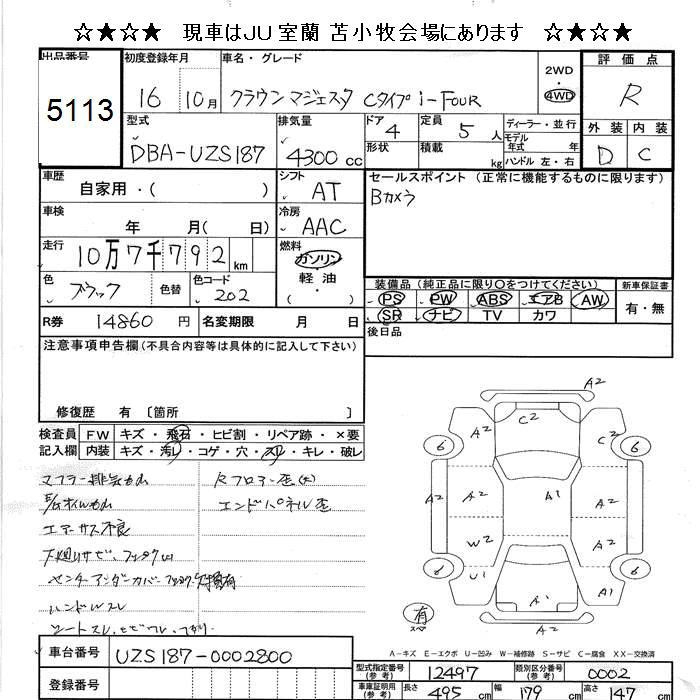 ☆★☆★ 現車はJU室蘭 苫小牧会場にあります ☆★☆★
出品番号
5113
初度登録年月
16 10月
車名・グレード
クラウン マジェスタ Cタイプ i-FOUR
2WD
・
4WD
評価点
R
外装 内装
D C
型式
DBA-UZS187
排気量
4300 cc
ドア
4
形状
定員
5 人
積載
kg
ディーラー・並行
モデル
年式 年
ハンドル 左・右
車歴
自家用・( )
シフト
AT
セールスポイント (正常に機能するものに限ります)
Bカメラ
車検
年 月( 日)
冷房
AAC
走行
10万7千792 km
燃料
ガソリン
軽油
( ・ )
色
ブラック
色替
色コード
202
装備品 (純正品に限り○をつけてください)
PS PW ABS エアB AW
SR ナビ TV カワ
新車保証書
有・無
R券 14860 円
名変期限 月 日
後日品
注意事項申告欄(不具合内容等は具体的に記入して下さい)
修復歴 有 〔箇所 〕
検査員 FW キズ・飛石・ヒビ割・リペア跡・×要
記入欄 内装 キズ・汚レ・コゲ・穴・スレ・キレ・破レ
マフラー排気もれ
Rフロアー歪(大)
エンドパネル歪
エアーサス不良
下廻りサビ、
センターアンダーカバー
ハンドルスレ
シートスレ、ヒビワレ、
A2
C2
A2
A2
C2
6
6
A2
A2
A1
A2
W2
A2
6
6
U1
A1
A1
A2
有
スペア
A-キズ E-エクボ U-凹み W-補修跡 S-サビ C-腐食 XX-交換済
車台番号 UZS187-0002800
登録番号
型式指定番号
(参考)
12497
類別区分番号
(参考)
0002
車庫証明用
(参考)
長さ 495 cm 幅 179 cm 高さ 147 cm